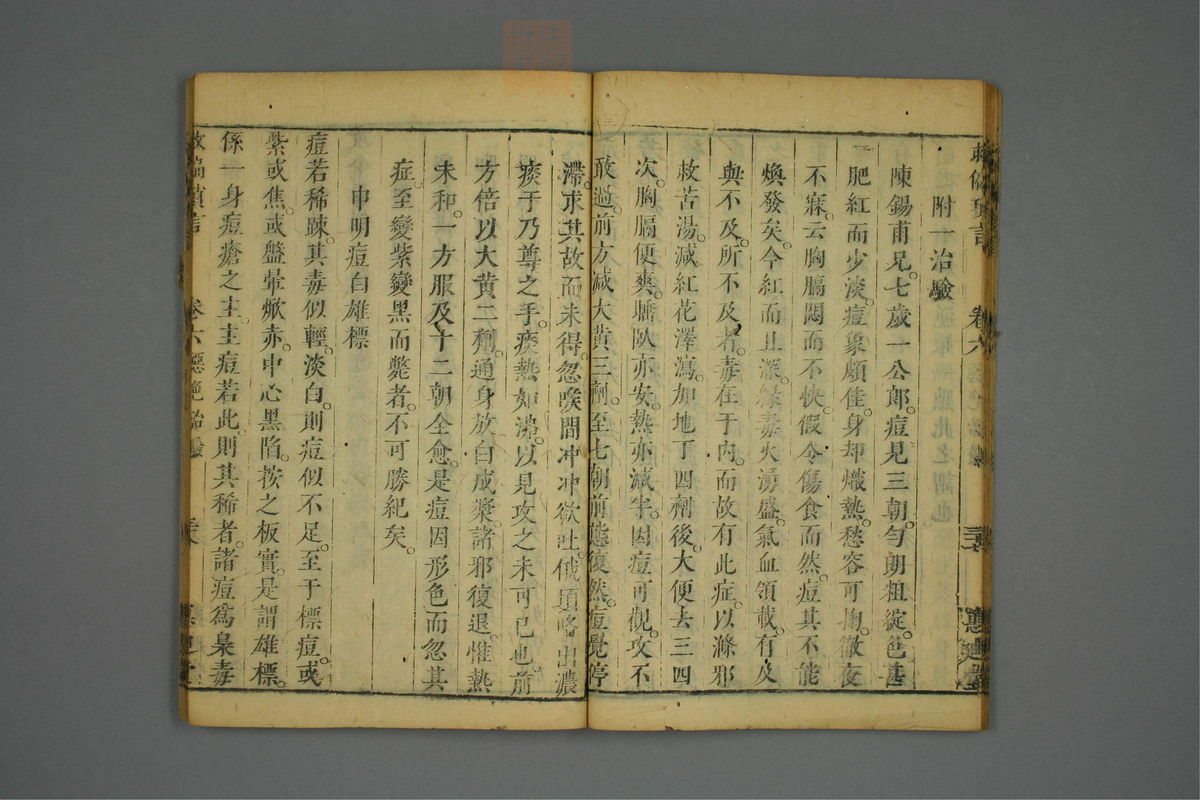 附一治驗
陳錫甫兄。七歲一公郎。痘見三朝。勻朗粗淀。色甚
肥紅而少淡。痘象頗佳。身却熾熱。愁容可掬。徹夜
不寐。云胸膈悶而不快。假令傷食而然。痘其不能
煥發矣。今紅而且深。緣毒火湧盛。氣血領載。有及
與不及。所不及者。毒在于內。而故有此症。以滌邪
救苦湯。減紅花澤瀉。加地丁四劑後。大便去三四
次。胸膈便爽。臥亦安。熱亦減半。因痘可觀。攻不
敢過。前方減大黃三劑。至七朝前。態復然。痘覺停
滯。求其故而未得。忽喉間冲冲欲吐。俄頃略出濃
痰于乃尊之手。痰熱如沸。以見攻之未可已也。前
方倍以大黃二劑。通身放白成漿。諸邪復退。惟熱
未和。一方服及十二朝全愈。是痘因形色而忽其
症。至變紫變黑而斃者。不可勝紀矣。
申明痘白雄標
痘若稀踈。其毒似輕。淡白。則痘似不足。至于標痘。或
紫或焦。或盤暈焮赤。中心黑陷。按之板實。是謂雄標。
係一身痘瘡之主。主痘若此。則其稀者。諸痘爲梟毒
救偏瑣言
卷六
卷六惡絶治驗